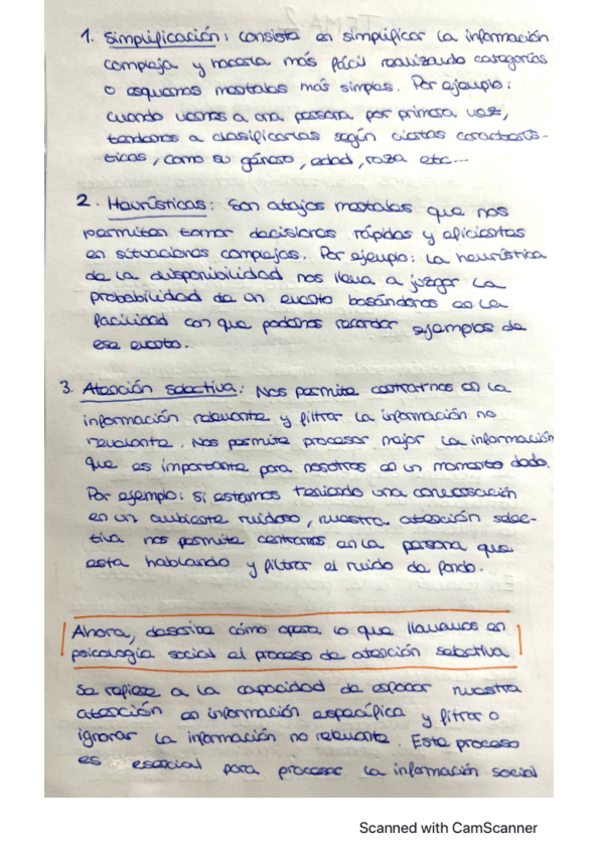 1. Simplificación: consiste en simplificar la información
compleja y hacerla más fácil realizando categorías
o esquemas mentales más simples. Por ejemplo:
cuando vemos a una persona por primera vez,
tendemos a clasificarlas según ciertas caracterís-
ticas, como su género, edad, raza etc...
2. Heurísticas: Son atajos mentales que nos
permiten tomar decisiones rápidas y eficientes
en situaciones complejas. Por ejemplo: la heurística
de la disponibilidad nos lleva a juzgar la
probabilidad de un evento basándonos en la
facilidad con que podemos recordar ejemplos de
ese evento.
3. Atención selectiva: Nos permite centrarnos en la
información relevante y filtrar la información no
relevante. Nos permite procesar mejor la información
que es importante para nosotros en un momento dado.
Por ejemplo: si estamos teniendo una conversación
en un ambiente ruidoso, nuestra atención selec-
tiva nos permite centrarnos en la persona que
esta hablando y filtrar el ruido de fondo.
Ahora, describe cómo opera lo que llamamos en
psicología social el proceso de atención selectiva
Se refiere a la capacidad de enfocar nuestra
atención en información específica y filtrar o
ignorar la información no relevante. Este proceso
es esencial para procesar la información social
Scanned with CamScanner